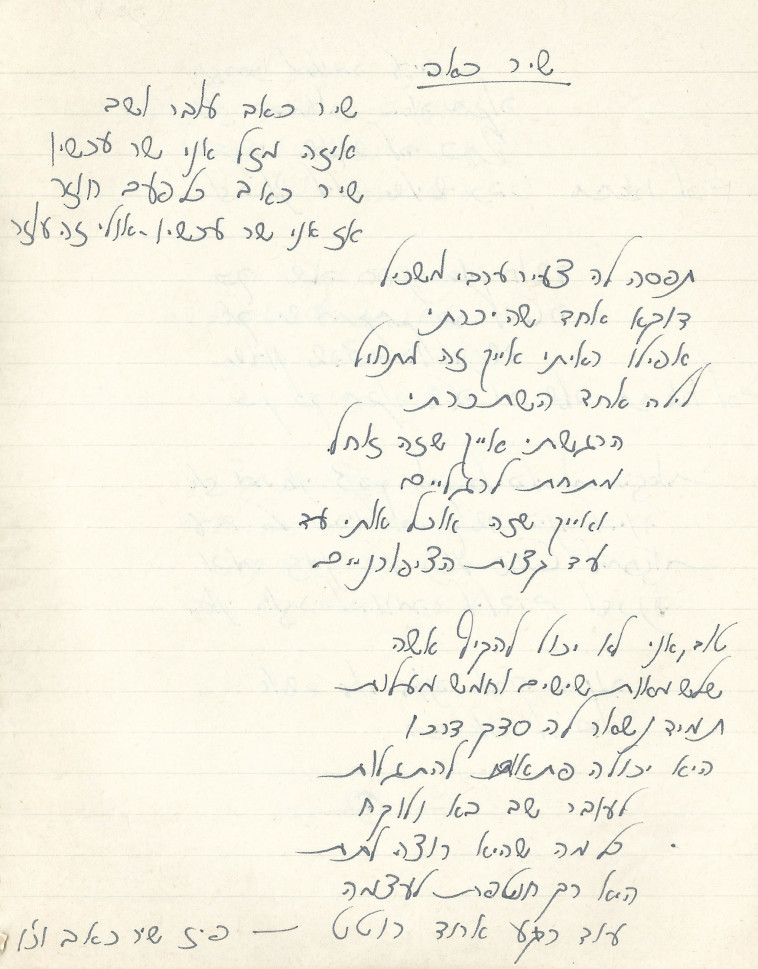 שיר כאבי
שיר כאב עובר ושב
איזה מזל אני שר עכשיו
שיר כאב כל פעם חוזר
אז אני שר עכשיו - אולי זה עוזר
תפסה לה צעיר ערבי משכיל
דווקא אחד שהיכרתי
אפילו ראיתי אייך זה מתחיל
לילה אחד השתכרתי
הרגשתי אייך שזה זוחל
מתחת לרגליים
ואייך שזה אוכל אותי עד
עד קצות הציפורניים
טוב, אני לא יכול להקיף אשה
שלש מאות שישים וחמש מעלות
תמיד נשאר לה סדק דרכו
היא יכולה פתאום להתגלות
לעובר שב בא ולוקח
כל מה שהיא רוצה לתת
היא רק חוטפת לעצמה
עוד רגע אחד רוטט — פיז שיר כאב וכו